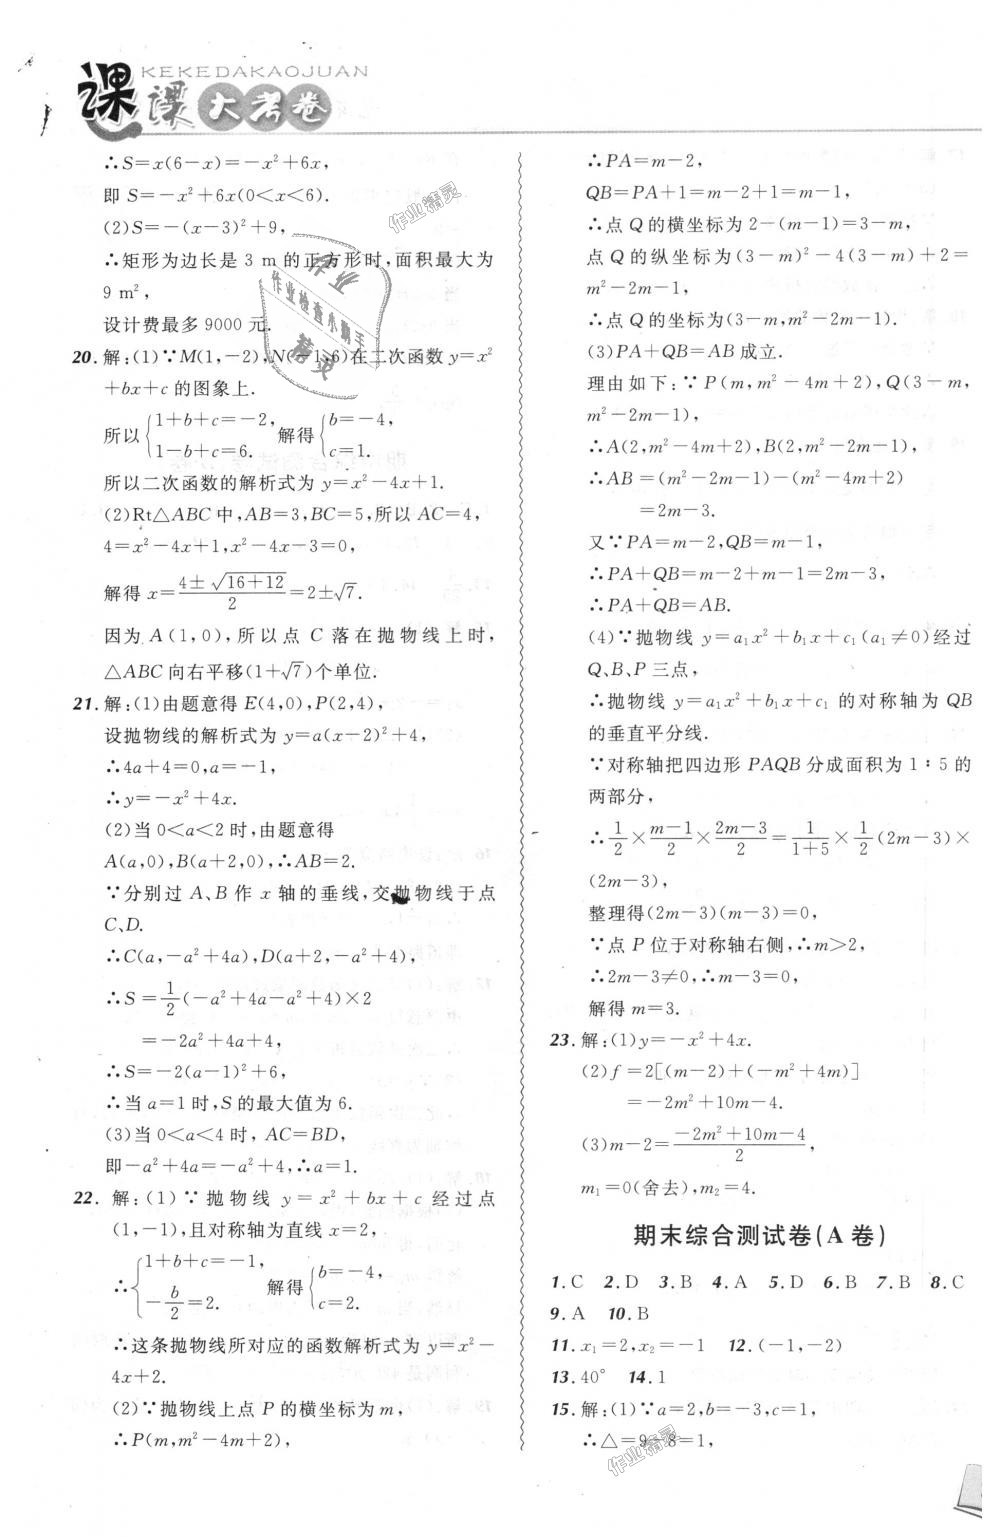 KEKEDAKAOJUAN
课课大考卷
∴S=x(6-x)=-x²+6x,
即 S=-x²+6x(0<x<6).
(2)S=-(x-3)²+9,
∴矩形为边长是 3 m 的正方形时,面积最大为
9 m²,
设计费最多 9000 元.
20. 解:(1)∵M(1,-2),N(-1,6)在二次函数 y=x²
+bx+c 的图象上.
所以{1+b+c=-2, 1-b+c=6. 解得{b=-4, c=1.
所以二次函数的解析式为 y=x²-4x+1.
(2)Rt△ABC 中,AB=3,BC=5,所以 AC=4,
4=x²-4x+1,x²-4x-3=0,
解得 x=(4±√(16+12))/2=2±√7.
因为 A(1,0),所以点 C 落在抛物线上时,
△ABC 向右平移(1+√7)个单位.
21. 解:(1)由题意得 E(4,0),P(2,4),
设抛物线的解析式为 y=a(x-2)²+4,
∴4a+4=0,a=-1,
∴y=-x²+4x.
(2)当 0<a<2 时,由题意得
A(a,0),B(a+2,0),∴AB=2.
∵分别过 A、B 作 x 轴的垂线,交抛物线于点
C、D.
∴C(a,-a²+4a),D(a+2,-a²+4),
∴S=1/2(-a²+4a-a²+4)×2
=-2a²+4a+4,
∴S=-2(a-1)²+6,
∴当 a=1 时,S 的最大值为 6.
(3)当 0<a<4 时,AC=BD,
即-a²+4a=-a²+4,∴a=1.
22. 解:(1)∵抛物线 y=x²+bx+c 经过点
(1,-1),且对称轴为直线 x=2,
∴{1+b+c=-1, -b/2=2. 解得{b=-4, c=2.
∴这条抛物线所对应的函数解析式为 y=x²-
4x+2.
(2)∵抛物线上点 P 的横坐标为 m,
∴P(m,m²-4m+2),
∴PA=m-2,
QB=PA+1=m-2+1=m-1,
∴点 Q 的横坐标为 2-(m-1)=3-m,
点 Q 的纵坐标为(3-m)²-4(3-m)+2=
m²-2m-1,
∴点 Q 的坐标为(3-m,m²-2m-1).
(3)PA+QB=AB 成立.
理由如下:∵P(m,m²-4m+2),Q(3-m,
m²-2m-1),
∴A(2,m²-4m+2),B(2,m²-2m-1),
∴AB=(m²-2m-1)-(m²-4m+2)
=2m-3.
又∵PA=m-2,QB=m-1,
∴PA+QB=m-2+m-1=2m-3,
∴PA+QB=AB.
(4)∵抛物线 y=a₁x²+b₁x+c₁(a₁≠0)经过
Q、B、P 三点,
∴抛物线 y=a₁x²+b₁x+c₁ 的对称轴为 QB
的垂直平分线.
∵对称轴把四边形 PAQB 分成面积为 1∶5 的
两部分,
∴1/2×(m-1)/2×(2m-3)/2=1/(1+5)×1/2(2m-3)×
(2m-3),
整理得(2m-3)(m-3)=0,
∵点 P 位于对称轴右侧,∴m>2,
∴2m-3≠0,∴m-3=0,
解得 m=3.
23. 解:(1)y=-x²+4x.
(2)f=2[(m-2)+(-m²+4m)]
=-2m²+10m-4.
(3)m-2=(-2m²+10m-4)/2,
m₁=0(舍去),m₂=4.
期末综合测试卷(A 卷)
1. C 2. D 3. B 4. A 5. D 6. B 7. B 8. C
9. A 10. B
11. x₁=2,x₂=-1 12. (-1,-2)
13. 40° 14. 1
15. 解:(1)∵a=2,b=-3,c=1,
∴△=9-8=1,
作业精灵
作业
作业检查小助手
精灵
作业精灵